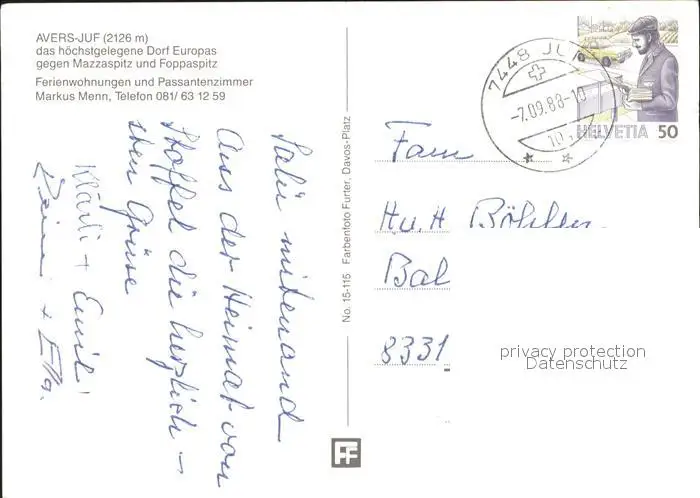 AVERS-JUF (2126 m)
das höchstgelegene Dorf Europas
gegen Mazzaspitz und Foppaspitz
Ferienwohnungen und Passantenzimmer
Markus Menn, Telefon 081/ 63 12 59
Salü mitenand
Aus der Heimat von
Stoffel die herzlich-
sten Grüsse
Klärli + Emil
+ Ella.
No. 15-115 Farbenfoto Furter, Davos-Platz
FF
7448 JUF
-7.09.88-10
HELVETIA 50
Fam
H u. H
Bal
8331
privacy protection
Datenschutz